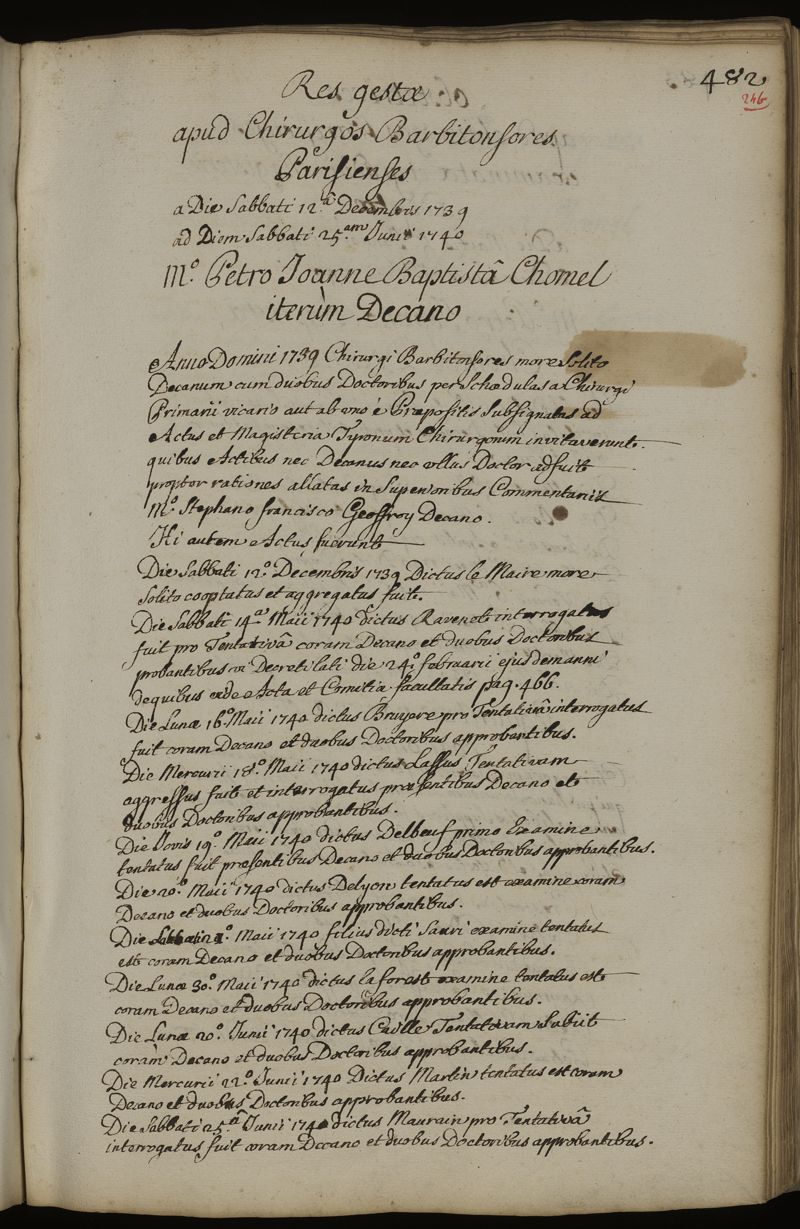 482
246
Res gestæ
apud Chirurgos Barbitonsores
Parisienses
a Die Sabbati 12.ª Decembris 1739
ad Diem Sabbati 25.am Junii 1740
M.º Petro Joanne Baptistâ Chomel
iterùm Decano
Anno Domini 1739 Chirurgi Barbitonsores more solito
Decanum cum duobus Doctoribus per Schædulas a Chirurgi
Primarii vicario aut ab uno è Præpositis subsignatas ad
Actus et Magisteria Tyronum Chirurgorum invitaverunt.
quibus Actibus nec Decanus nec ullus Doctor adfuit
propter rationes allatas in superioribus Commentariis
M.º Stephano francisco Geoffroy Decano.
Hi autem Actus fuerunt
Die Sabbati 12.º Decembris 1739 Dictus le Maire more
solito cooptatus et aggregatus fuit.
Die Sabbati 14.ª Maii 1740 dictus Ravenet interrogatus
fuit pro Tentativâ coram Decano et duobus Doctoribus
probantibus vi Decreti lati die 24.ª februarii ejusdem anni
de quibus vide Acta et Comitia facultatis pag. 466.
Die Lunæ 16.º Maii 1740 dictus Bruyere pro Tentativâ interrogatus
fuit coram Decano et duobus Doctoribus approbantibus.
Die Mercurii 18.º Maii 1740 dictus Lassus Tentativam
aggressus fuit et interrogatus præsentibus Decano et
duobus Doctoribus approbantibus.
Die Jovis 19.º Maii 1740 dictus Delbeuf primo Examine
tentatus fuit præsentibus Decano et duobus Doctoribus approbantibus.
Die 20.º Maii 1740 dictus Delyon tentatus est examine coram
Decano et duobus Doctoribus approbantibus.
Die Sabbati 21.º Maii 1740 filius dicti Sauri examine tentatus
est coram Decano et duobus Doctoribus approbantibus.
Die Lunæ 30.º Maii 1740 dictus laforest examine tentatus est
coram Decano et duobus Doctoribus approbantibus.
Die Lunæ 20.º Junii 1740 dictus Caille Tentativam subiit
coram Decano et duobus Doctoribus approbantibus.
Die Mercurii 22.º Junii 1740 Dictus Martin tentatus est coram
Decano et duobus Doctoribus approbantibus.
Die Sabbati 25.ª Junii 1740 dictus Maurain pro Tentativâ
interrogatus fuit coram Decano et duobus Doctoribus approbantibus.